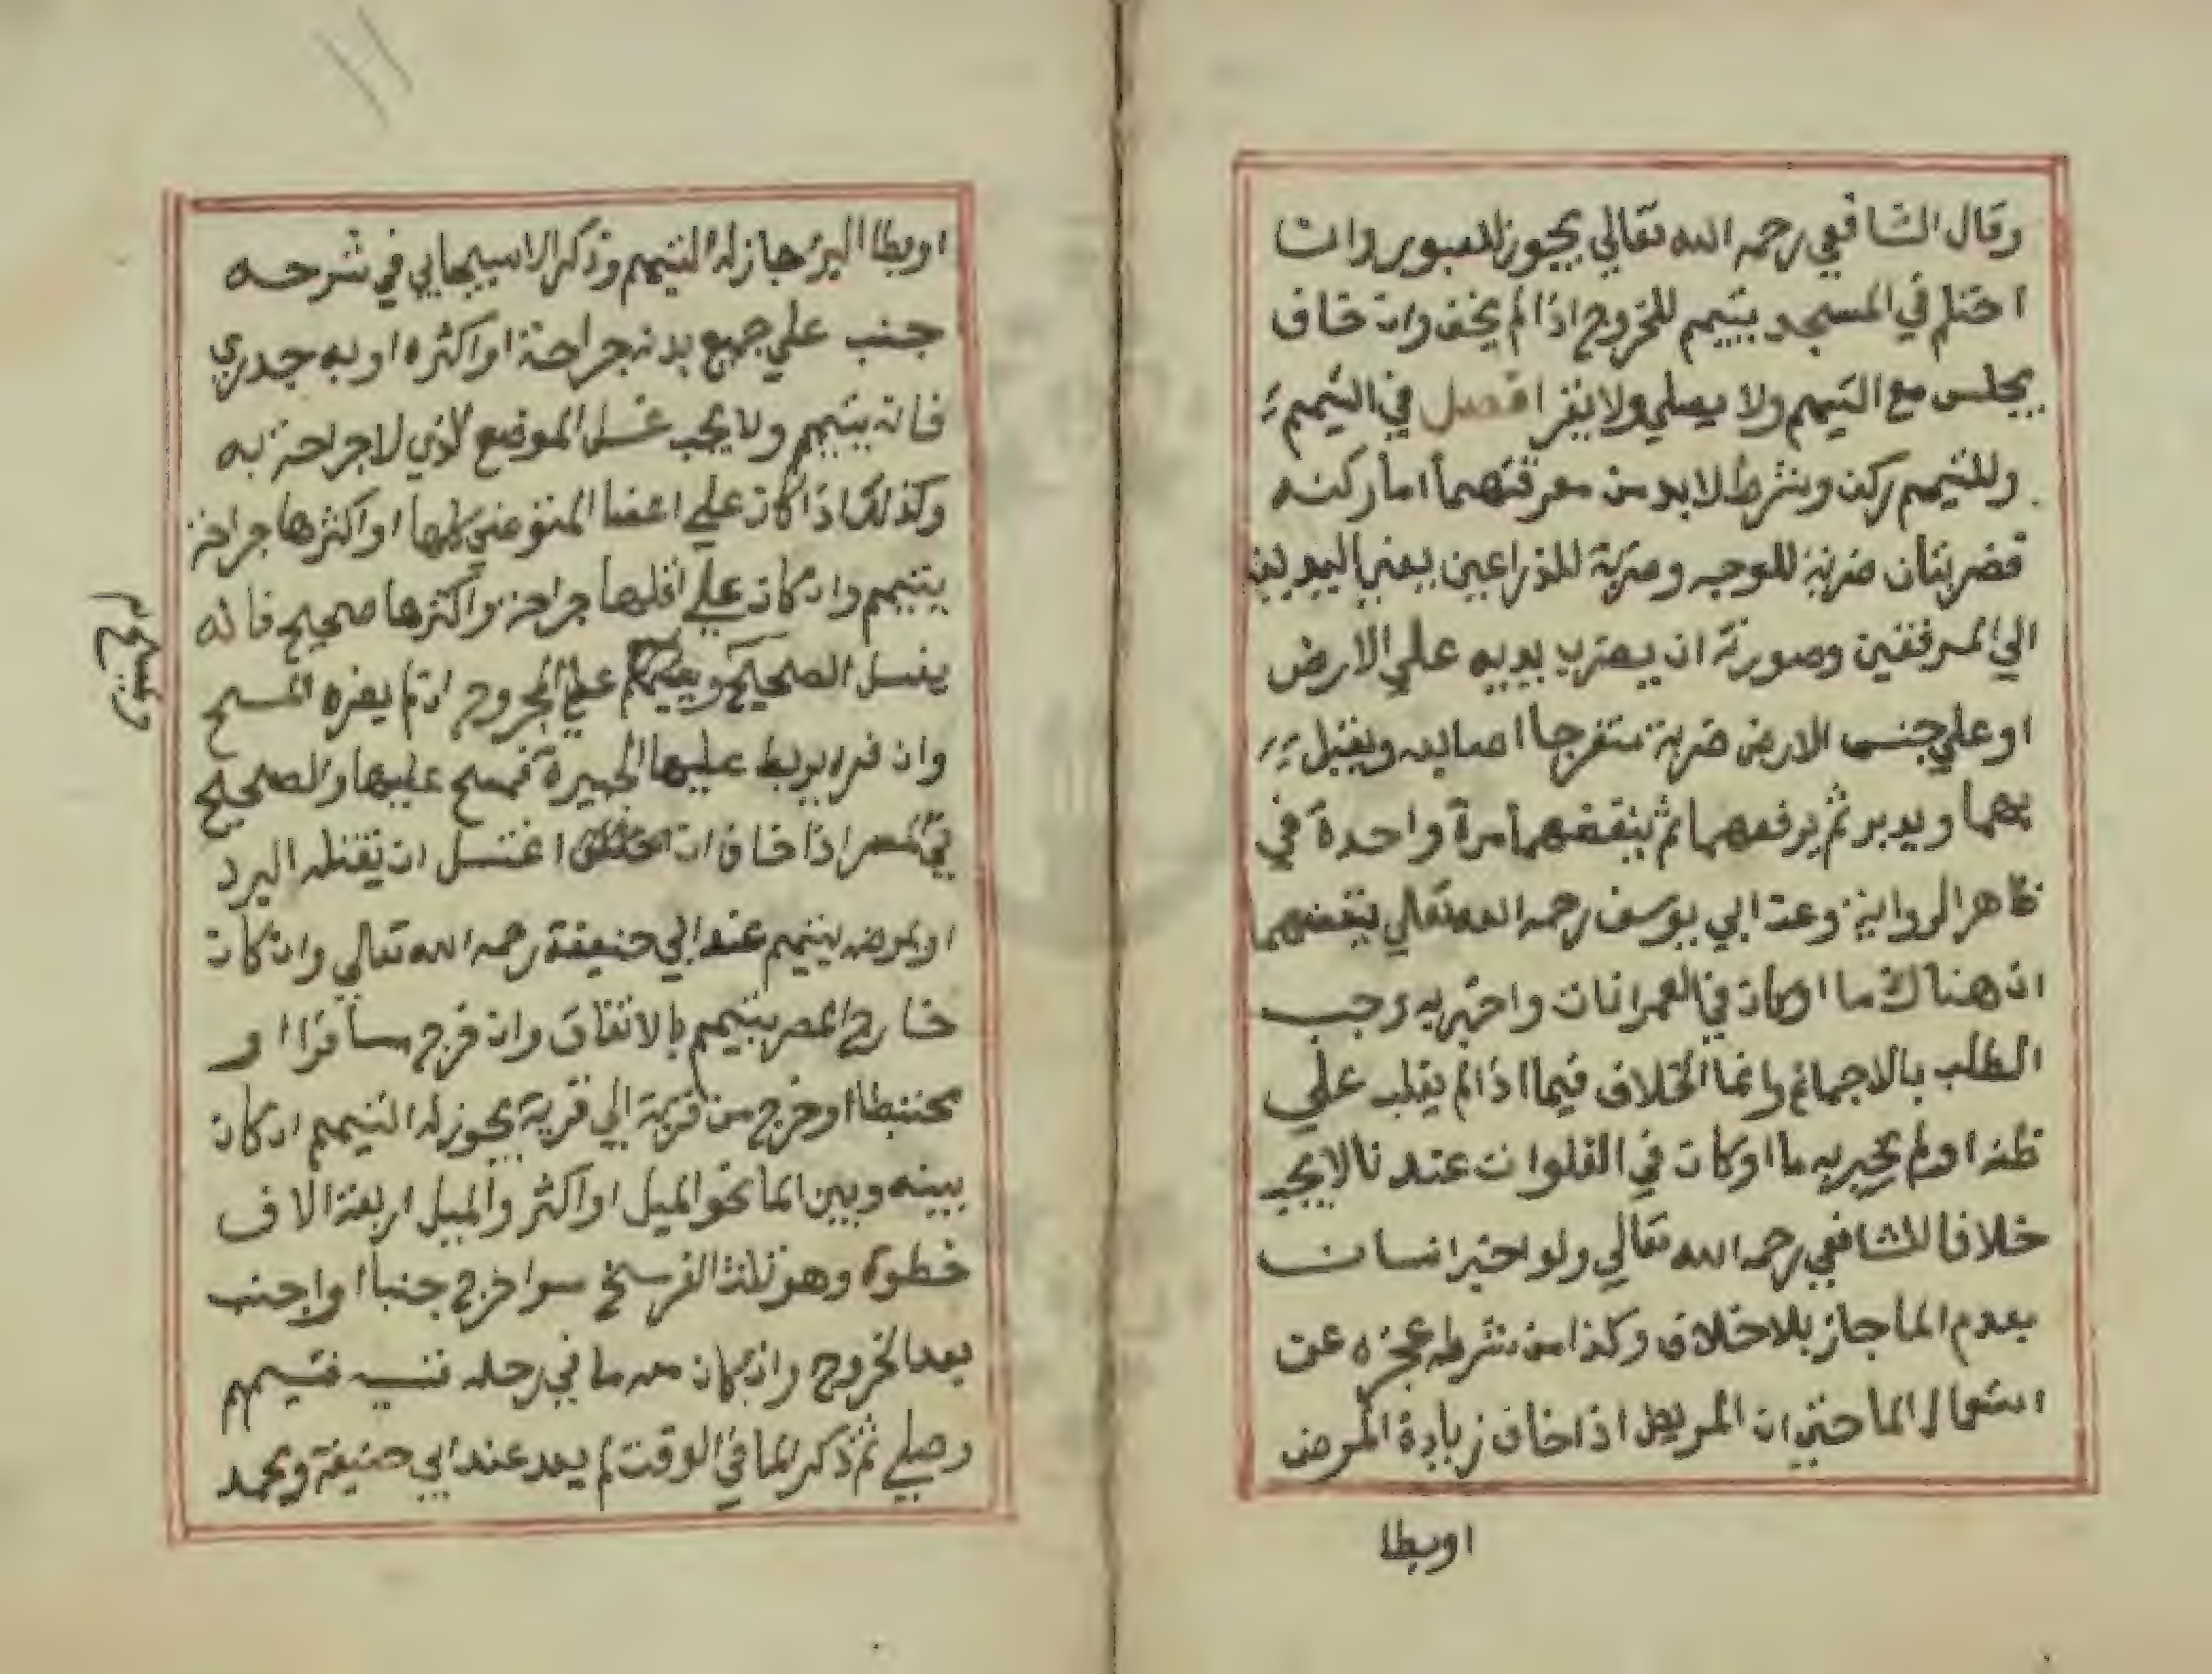 وقال الشافعي رحمه الله تعالي يجوز للعبور وان
احتلم في المسجد يتيمم للخروج اذا لم يخف وان خاف
يجلس مع التيمم ولا يصلي ولا يقرا فصل في التيمم
وللتيمم ركن وشرط لابد من معرفتهما اما ركنه
فضربتان ضربة للوجه وضربة للذراعين يعني اليدين
الي المرفقين وصورته ان يضرب يديه علي الارض
او علي جنس الارض ضربة منفرجا اصابعه ويقبل
بهما ويدبر ثم يرفعهما ثم ينفضهما مرة واحدة في
ظاهر الرواية وعن ابي يوسف رحمه الله تعالي ينفضهما
ان هناك ما او كان في العمرانات واخبر به وجب
الطلب بالاجماع وانما الخلاف فيما اذا لم يغلب علي
ظنه او لم يخبر به ما او كان في الفلوات عندنا لا يجب
خلافا للشافعي رحمه الله تعالي ولو اخبر انسان
بعدم الما جاز بلا خلاف وكذا من شرطه عجزه عن
استعمال الما حتي ان المريض اذا خاف زيادة المرض
او بطا
او بطا البرء جاز له التيمم وذكر الاسبيجابي في شرحه
جنب علي جميع بدنه جراحة او اكثره او به جدري
فانه يتيمم ولا يجب غسل الموضع الذي لا جراحة به
وكذلك اذا كان علي اعضا المتوضي كلها او اكثرها جراحة
يتيمم وان كان علي اقلها جراحة واكثرها صحيح فانه
يغسل الصحيح علي المجروح ان لم يضره المسح
ويمسح
وان ضره يربط عليها الجبيرة فمسح عليها والصحيح
في المصر اذا خاف ان اغتسل ان يقتله البرد
او يمرضه يتيمم عند ابي حنيفة رحمه الله تعالي وان كان
خارج المصر يتيمم بالاتفاق وان خرج مسافرا او
محتطبا او خرج من قرية الي قرية يجوز له التيمم ان كان
بينه وبين الما نحو الميل او اكثر والميل اربعة الاف
خطوة وهو ثلث الفرسخ سوا خرج جنبا او اجنب
بعد الخروج وان كان معه ما في رحله فنسيه فتيمم
وصلي ثم ذكر الما في الوقت لم يعد عند ابي حنيفة ومحمد